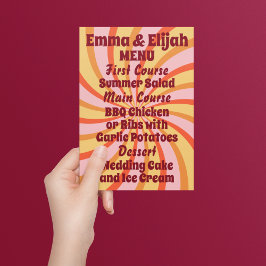 Emma & Elijah
MENU
First Course
Summer Salad
Main Course
BBQ Chicken
or Ribs with
Garlic Potatoes
Dessert
Wedding Cake
and Ice Cream